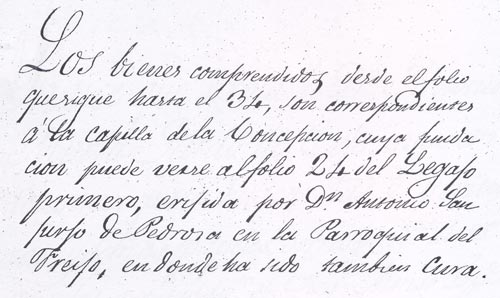 Los bienes comprendidos desde el folio
que sigue hasta el 34, son correspondientes
á la Capilla de la Concepcion, cuya funda
cion puede verse al folio 24 del Legajo
primero, erijida por Dn Antonio San
jurjo de Pedrosa en la Parroquial del
Freijo, en donde ha sido tambien Cura.